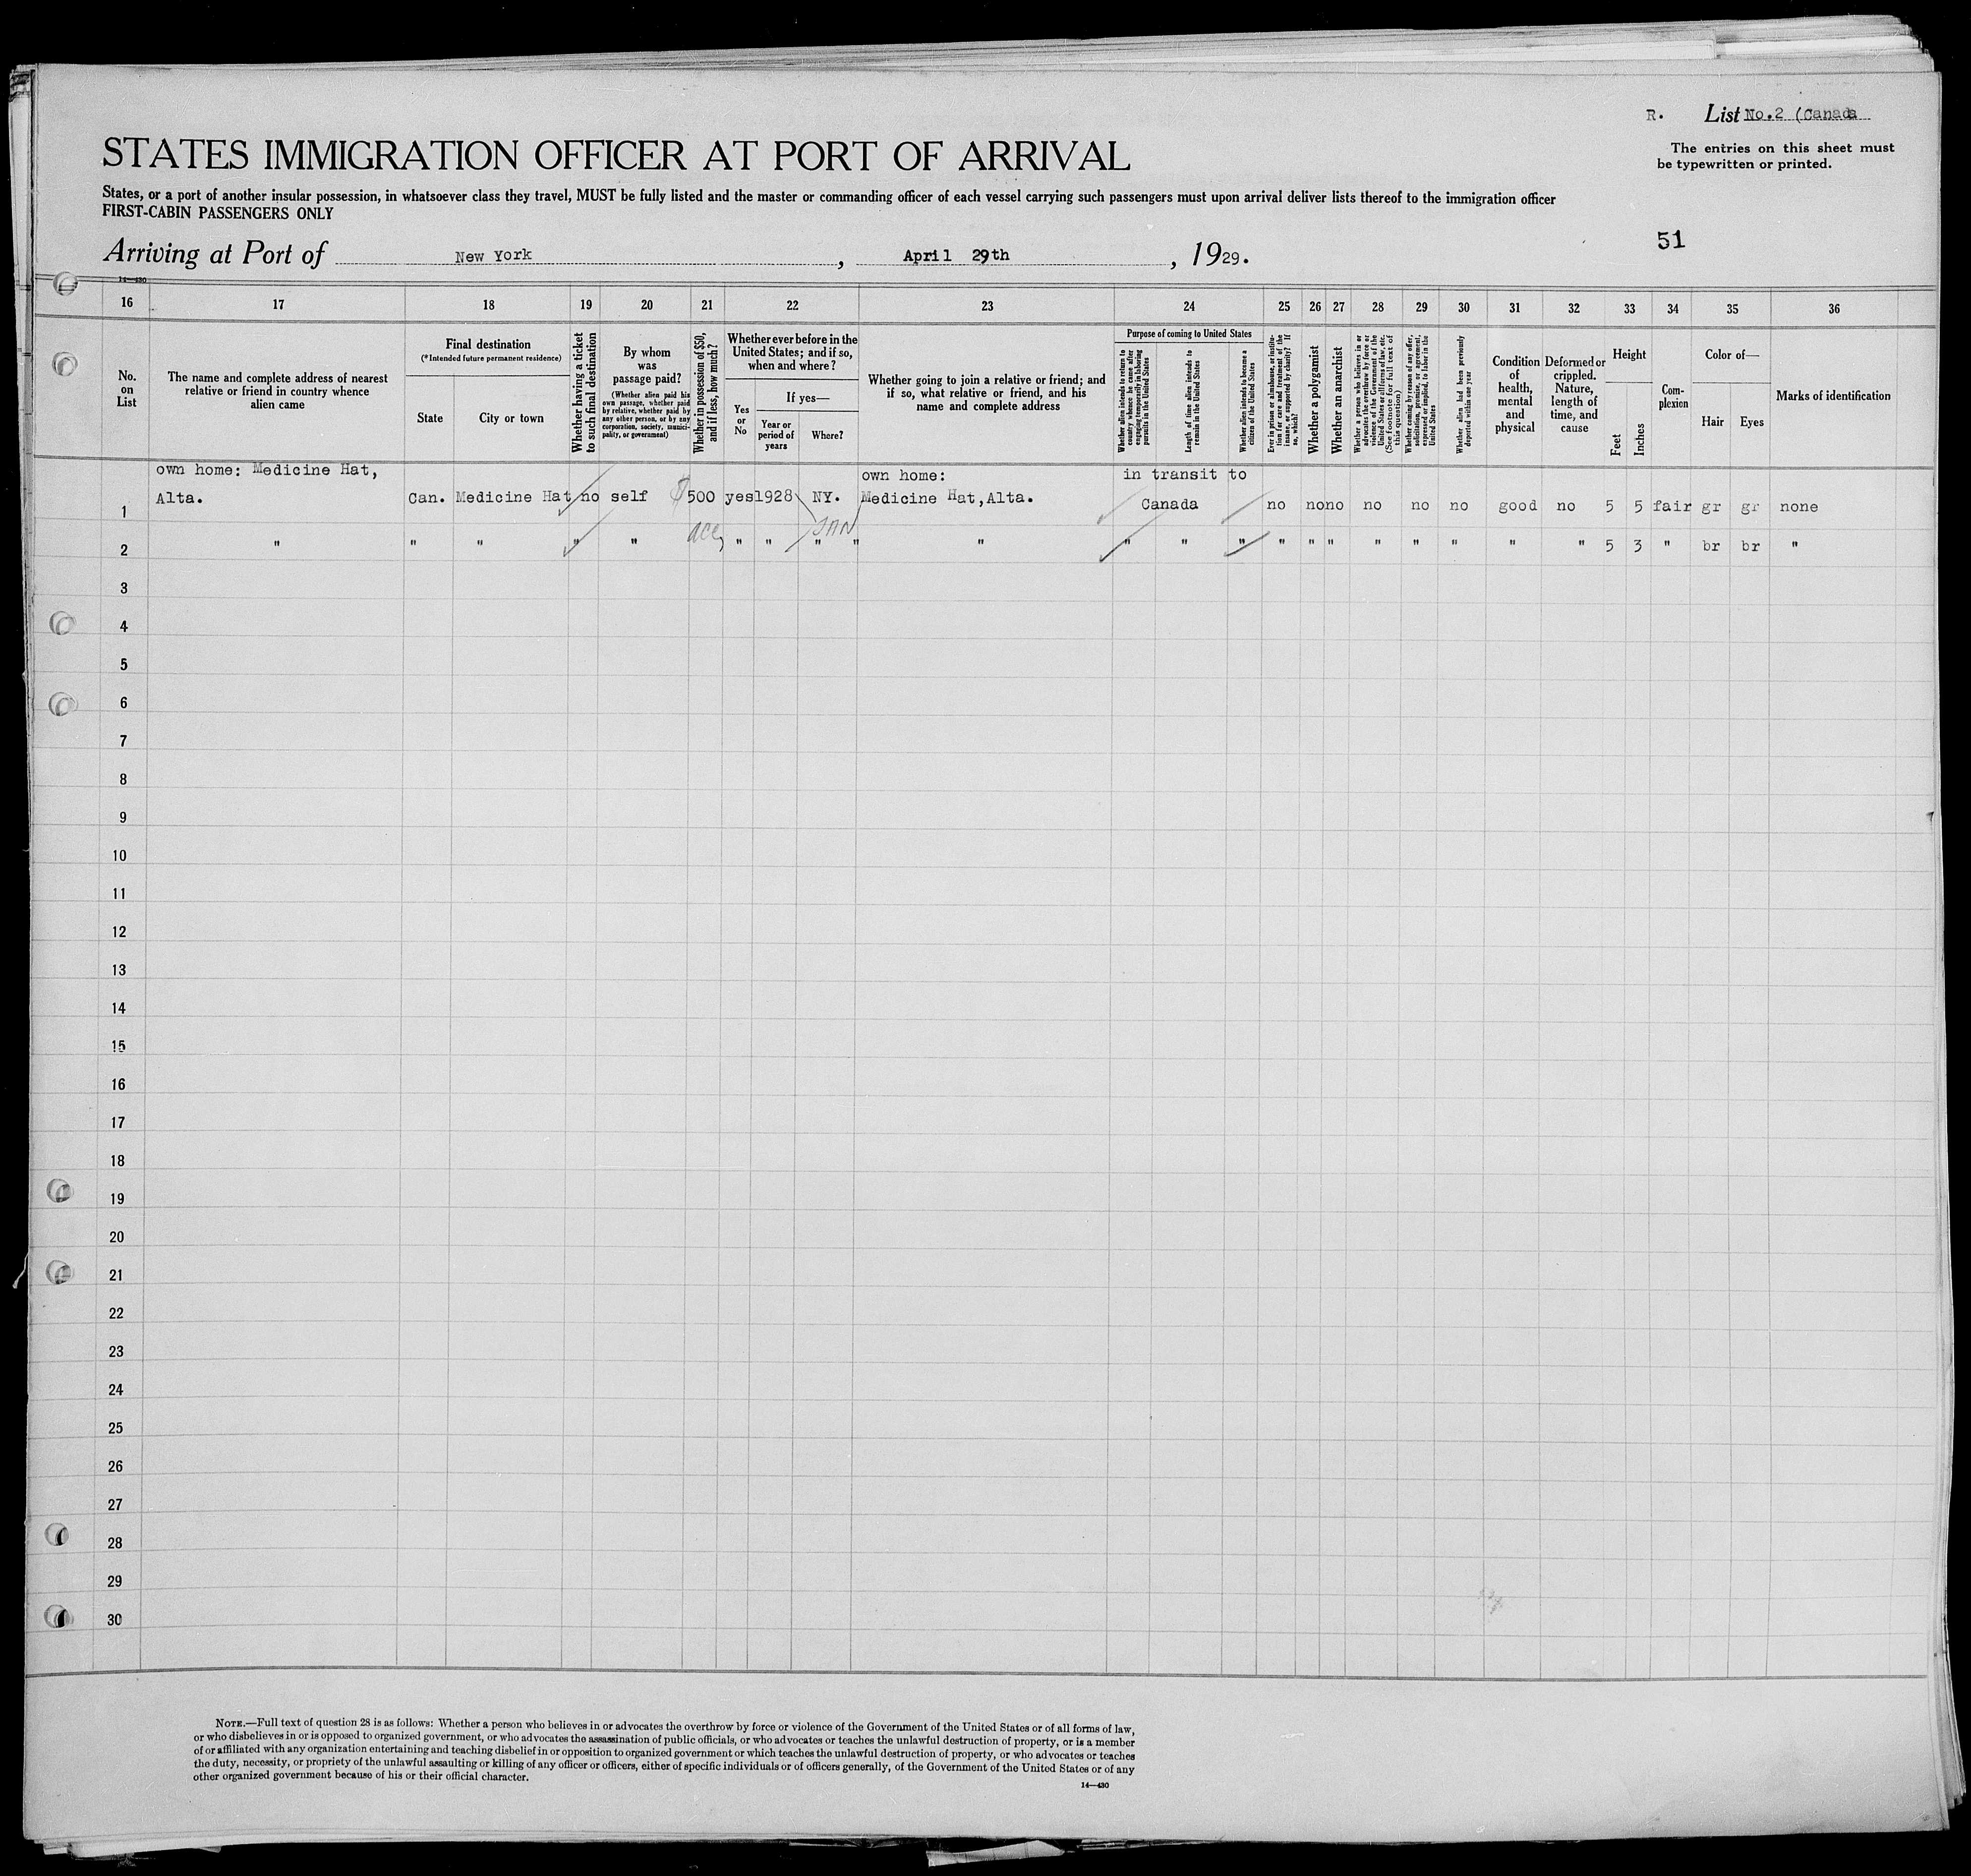 R. List No.2 (Canada
STATES IMMIGRATION OFFICER AT PORT OF ARRIVAL
The entries on this sheet must
be typewritten or printed.
States, or a port of another insular possession, in whatsoever class they travel, MUST be fully listed and the master or commanding officer of each vessel carrying such passengers must upon arrival deliver lists thereof to the immigration officer
FIRST-CABIN PASSENGERS ONLY
51
Arriving at Port of New York, April 29th, 1929.
14—430
16 17 18 19 20 21 22 23 24 25 26 27 28 29 30 31 32 33 34 35 36
No. on List
The name and complete address of nearest
relative or friend in country whence
alien came
Final destination
(*Intended future permanent residence)
State
City or town
Whether having a ticket
to such final destination
By whom
was
passage paid?
(Whether alien paid his
own passage, whether paid
by relative, whether paid by
any other person, or by any
corporation, society, munici-
pality, or government)
Whether in possession of $50,
and if less, how much?
Whether ever before in the
United States; and if so,
when and where?
Yes or No
If yes—
Year or
period of
years
Where?
Whether going to join a relative or friend; and
if so, what relative or friend, and his
name and complete address
Purpose of coming to United States
Whether alien intends to return to
country whence he came after
engaging temporarily in laboring
pursuits in the United States
Length of time alien intends to
remain in the United States
Whether alien intends to become a
citizen of the United States
Ever in prison or almshouse, or institu-
tion for care and treatment of the
insane, or supported by charity? If
so, which?
Whether a polygamist
Whether an anarchist
Whether a person who believes in or
advocates the overthrow by force or
violence of the Government of the
United States or all forms of law, etc.
(See footnote for full text of
this question)
Whether coming by reason of any offer,
solicitation, promise, or agreement,
expressed or implied, to labor in the
United States
Whether alien had been previously
deported within one year
Condition
of
health,
mental
and
physical
Deformed or
crippled.
Nature,
length of
time, and
cause
Height
Feet
Inches
Com-
plexion
Color of—
Hair
Eyes
Marks of identification
own home: Medicine Hat, own home: in transit to
1 Alta. Can. Medicine Hat no self $500 yes 1928 NY. Medicine Hat,Alta. Canada no no no no no no good no 5 5 fair gr gr none
2 " " " " " " " " " " " " " " " " " " " " " " 5 3 " br br "
3
4
5
6
7
8
9
10
11
12
13
14
15
16
17
18
19
20
21
22
23
24
25
26
27
28
29
30
NOTE.—Full text of question 28 is as follows: Whether a person who believes in or advocates the overthrow by force or violence of the Government of the United States or of all forms of law,
or who disbelieves in or is opposed to organized government, or who advocates the assassination of public officials, or who advocates or teaches the unlawful destruction of property, or is a member
of or affiliated with any organization entertaining and teaching disbelief in or opposition to organized government or which teaches the unlawful destruction of property, or who advocates or teaches
the duty, necessity, or propriety of the unlawful assaulting or killing of any officer or officers, either of specific individuals or of officers generally, of the Government of the United States or of any
other organized government because of his or their official character.
14—430